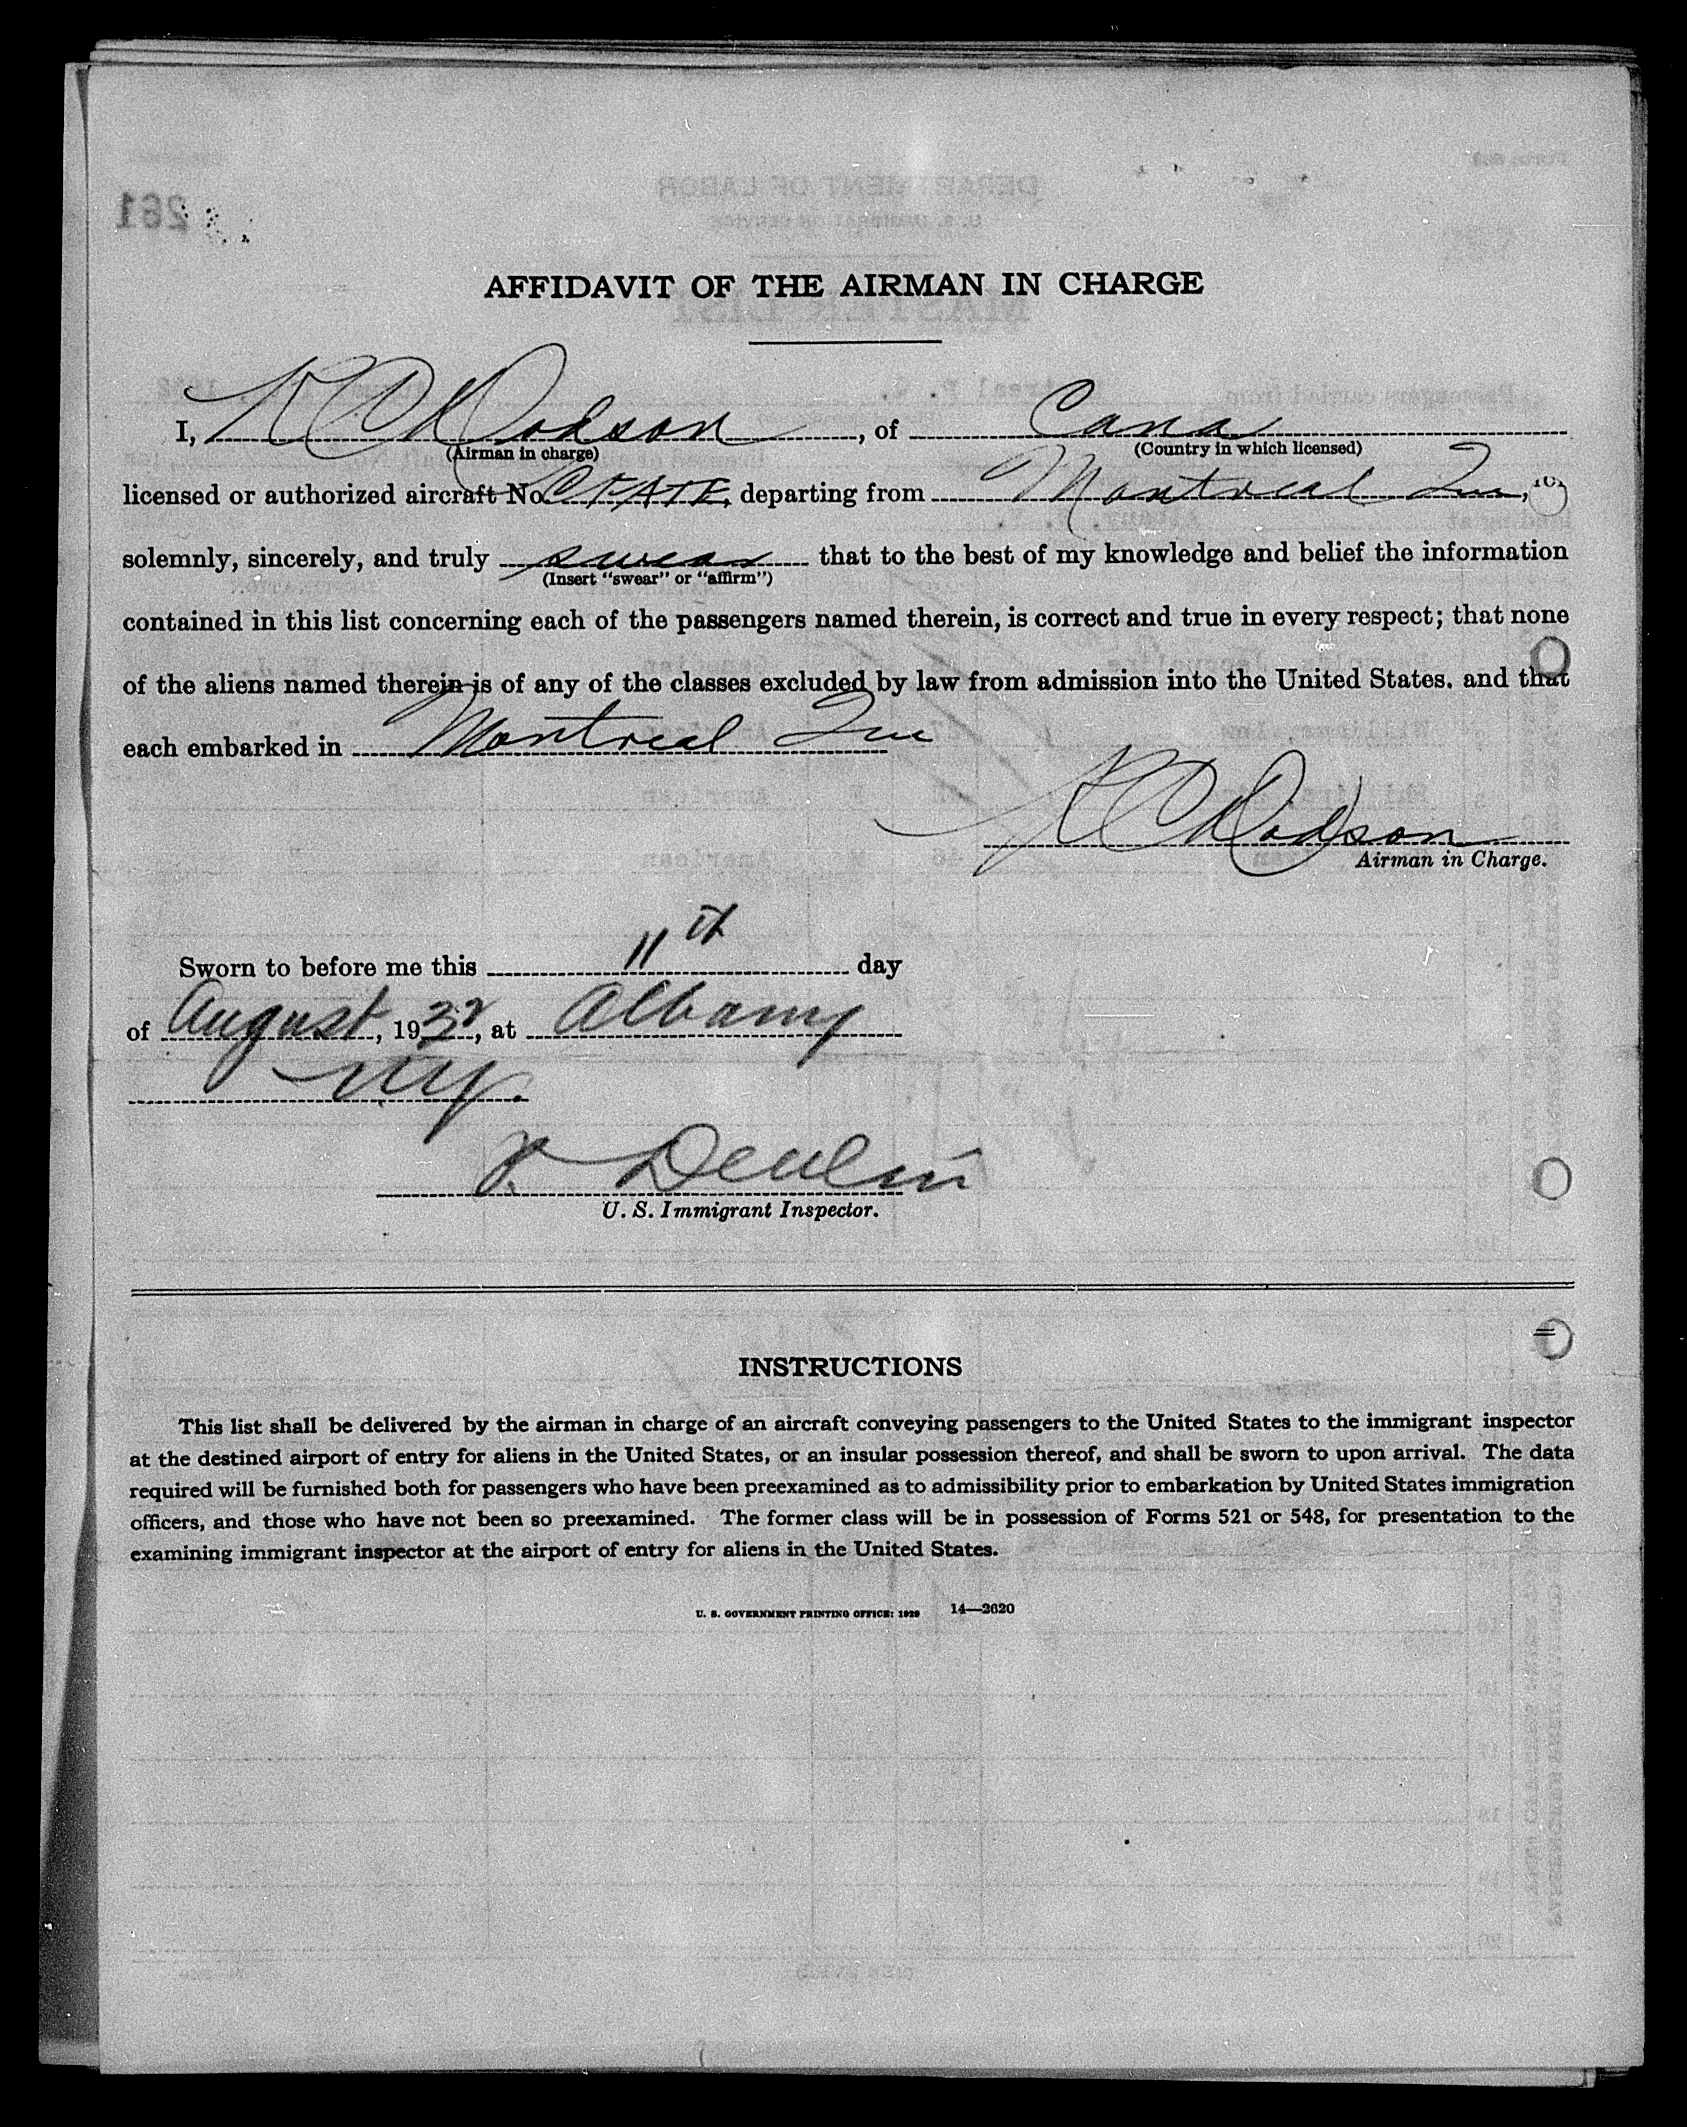 AFFIDAVIT OF THE AIRMAN IN CHARGE
I, K C Dodson, of Cana
(Airman in charge) (Country in which licensed)
licensed or authorized aircraft No. departing from Montreal Que,
solemnly, sincerely, and truly swear that to the best of my knowledge and belief the information
(Insert "swear" or "affirm")
contained in this list concerning each of the passengers named therein, is correct and true in every respect; that none
of the aliens named therein is of any of the classes excluded by law from admission into the United States, and that
each embarked in Montreal Que
K C Dodson
Airman in Charge.
Sworn to before me this 11th day
of August, 1932, at Albany
NY.
Devlin
U. S. Immigrant Inspector.
INSTRUCTIONS
This list shall be delivered by the airman in charge of an aircraft conveying passengers to the United States to the immigrant inspector
at the destined airport of entry for aliens in the United States, or an insular possession thereof, and shall be sworn to upon arrival. The data
required will be furnished both for passengers who have been preexamined as to admissibility prior to embarkation by United States immigration
officers, and those who have not been so preexamined. The former class will be in possession of Forms 521 or 548, for presentation to the
examining immigrant inspector at the airport of entry for aliens in the United States.
U. S. GOVERNMENT PRINTING OFFICE: 1929 14—2620